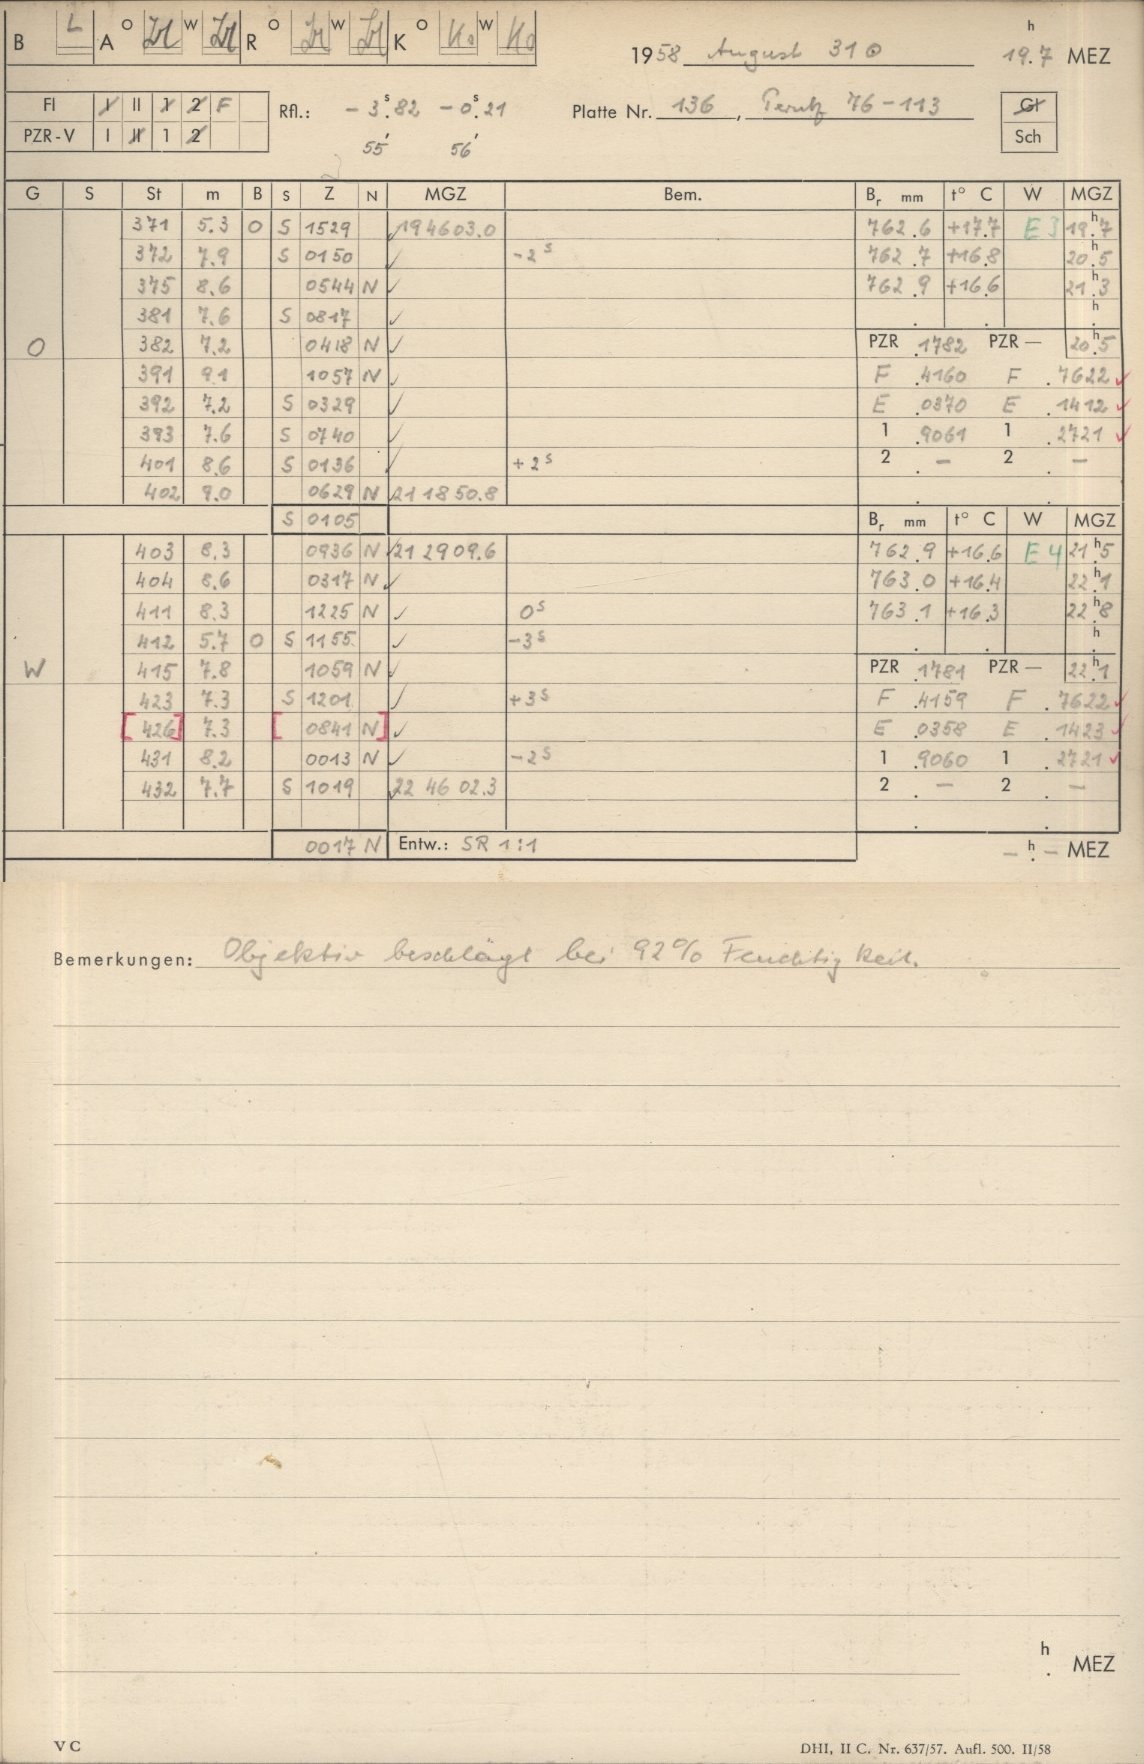 B L A O W R O W K O Ko W Ko
1958 August 31 ⊙ 19.7 h MEZ
FI I II 1 2 F Rfl.: – 3.s82 – 0.s21 Platte Nr. 136, Perutz 76-113 Gr
PZR-V I II 1 2 55′ 56′ Sch
G S St m B S Z N MGZ Bem. Br mm t° C W MGZ
371 5.3 O S 1529 ✓194603.0 762.6 +17.7 E3 19.h7
372 7.9 S 0150 ✓ -2s 762.7 +16.8 20.h5
375 8.6 0544 N ✓ 762.9 +16.6 21.h3
381 7.6 S 0817 ✓ . . h.
O 382 7.2 0418 N ✓ PZR .1782 PZR — 20.h5
391 9.1 1057 N ✓ F .4160 F .7622 ✓
392 7.2 S 0329 ✓ E .0370 E .1412 ✓
393 7.6 S 0740 ✓ 1 .9061 1 .2721 ✓
401 8.6 S 0136 ✓ +2s 2 . — 2 . —
402 9.0 0629 N 211850.8 . .
S 0105 Br mm t° C W MGZ
403 8.3 0936 N ✓212909.6 762.9 +16.6 E4 21.h5
404 8.6 0317 N ✓ 763.0 +16.4 22.h1
411 8.3 1225 N ✓ 0s 763.1 +16.3 22.h8
412 5.7 O S 1155 ✓ -3s . . h.
W 415 7.8 1059 N ✓ PZR .1781 PZR — 22.h1
423 7.3 S 1201 ✓ +3s F .4159 F .7622 ✓
[426] 7.3 [ 0841 N] ✓ E .0358 E .1423 ✓
431 8.2 0013 N ✓ -2s 1 .9060 1 .2721 ✓
432 7.7 S 1019 ✓22 46 02.3 2 . — 2 . —
0017 N Entw.: SR 1:1 – h. – MEZ
Bemerkungen: Objektiv beschlägt bei 92% Feuchtigkeit.
h. MEZ
VC DHI, II C. Nr. 637/57. Aufl. 500. II/58